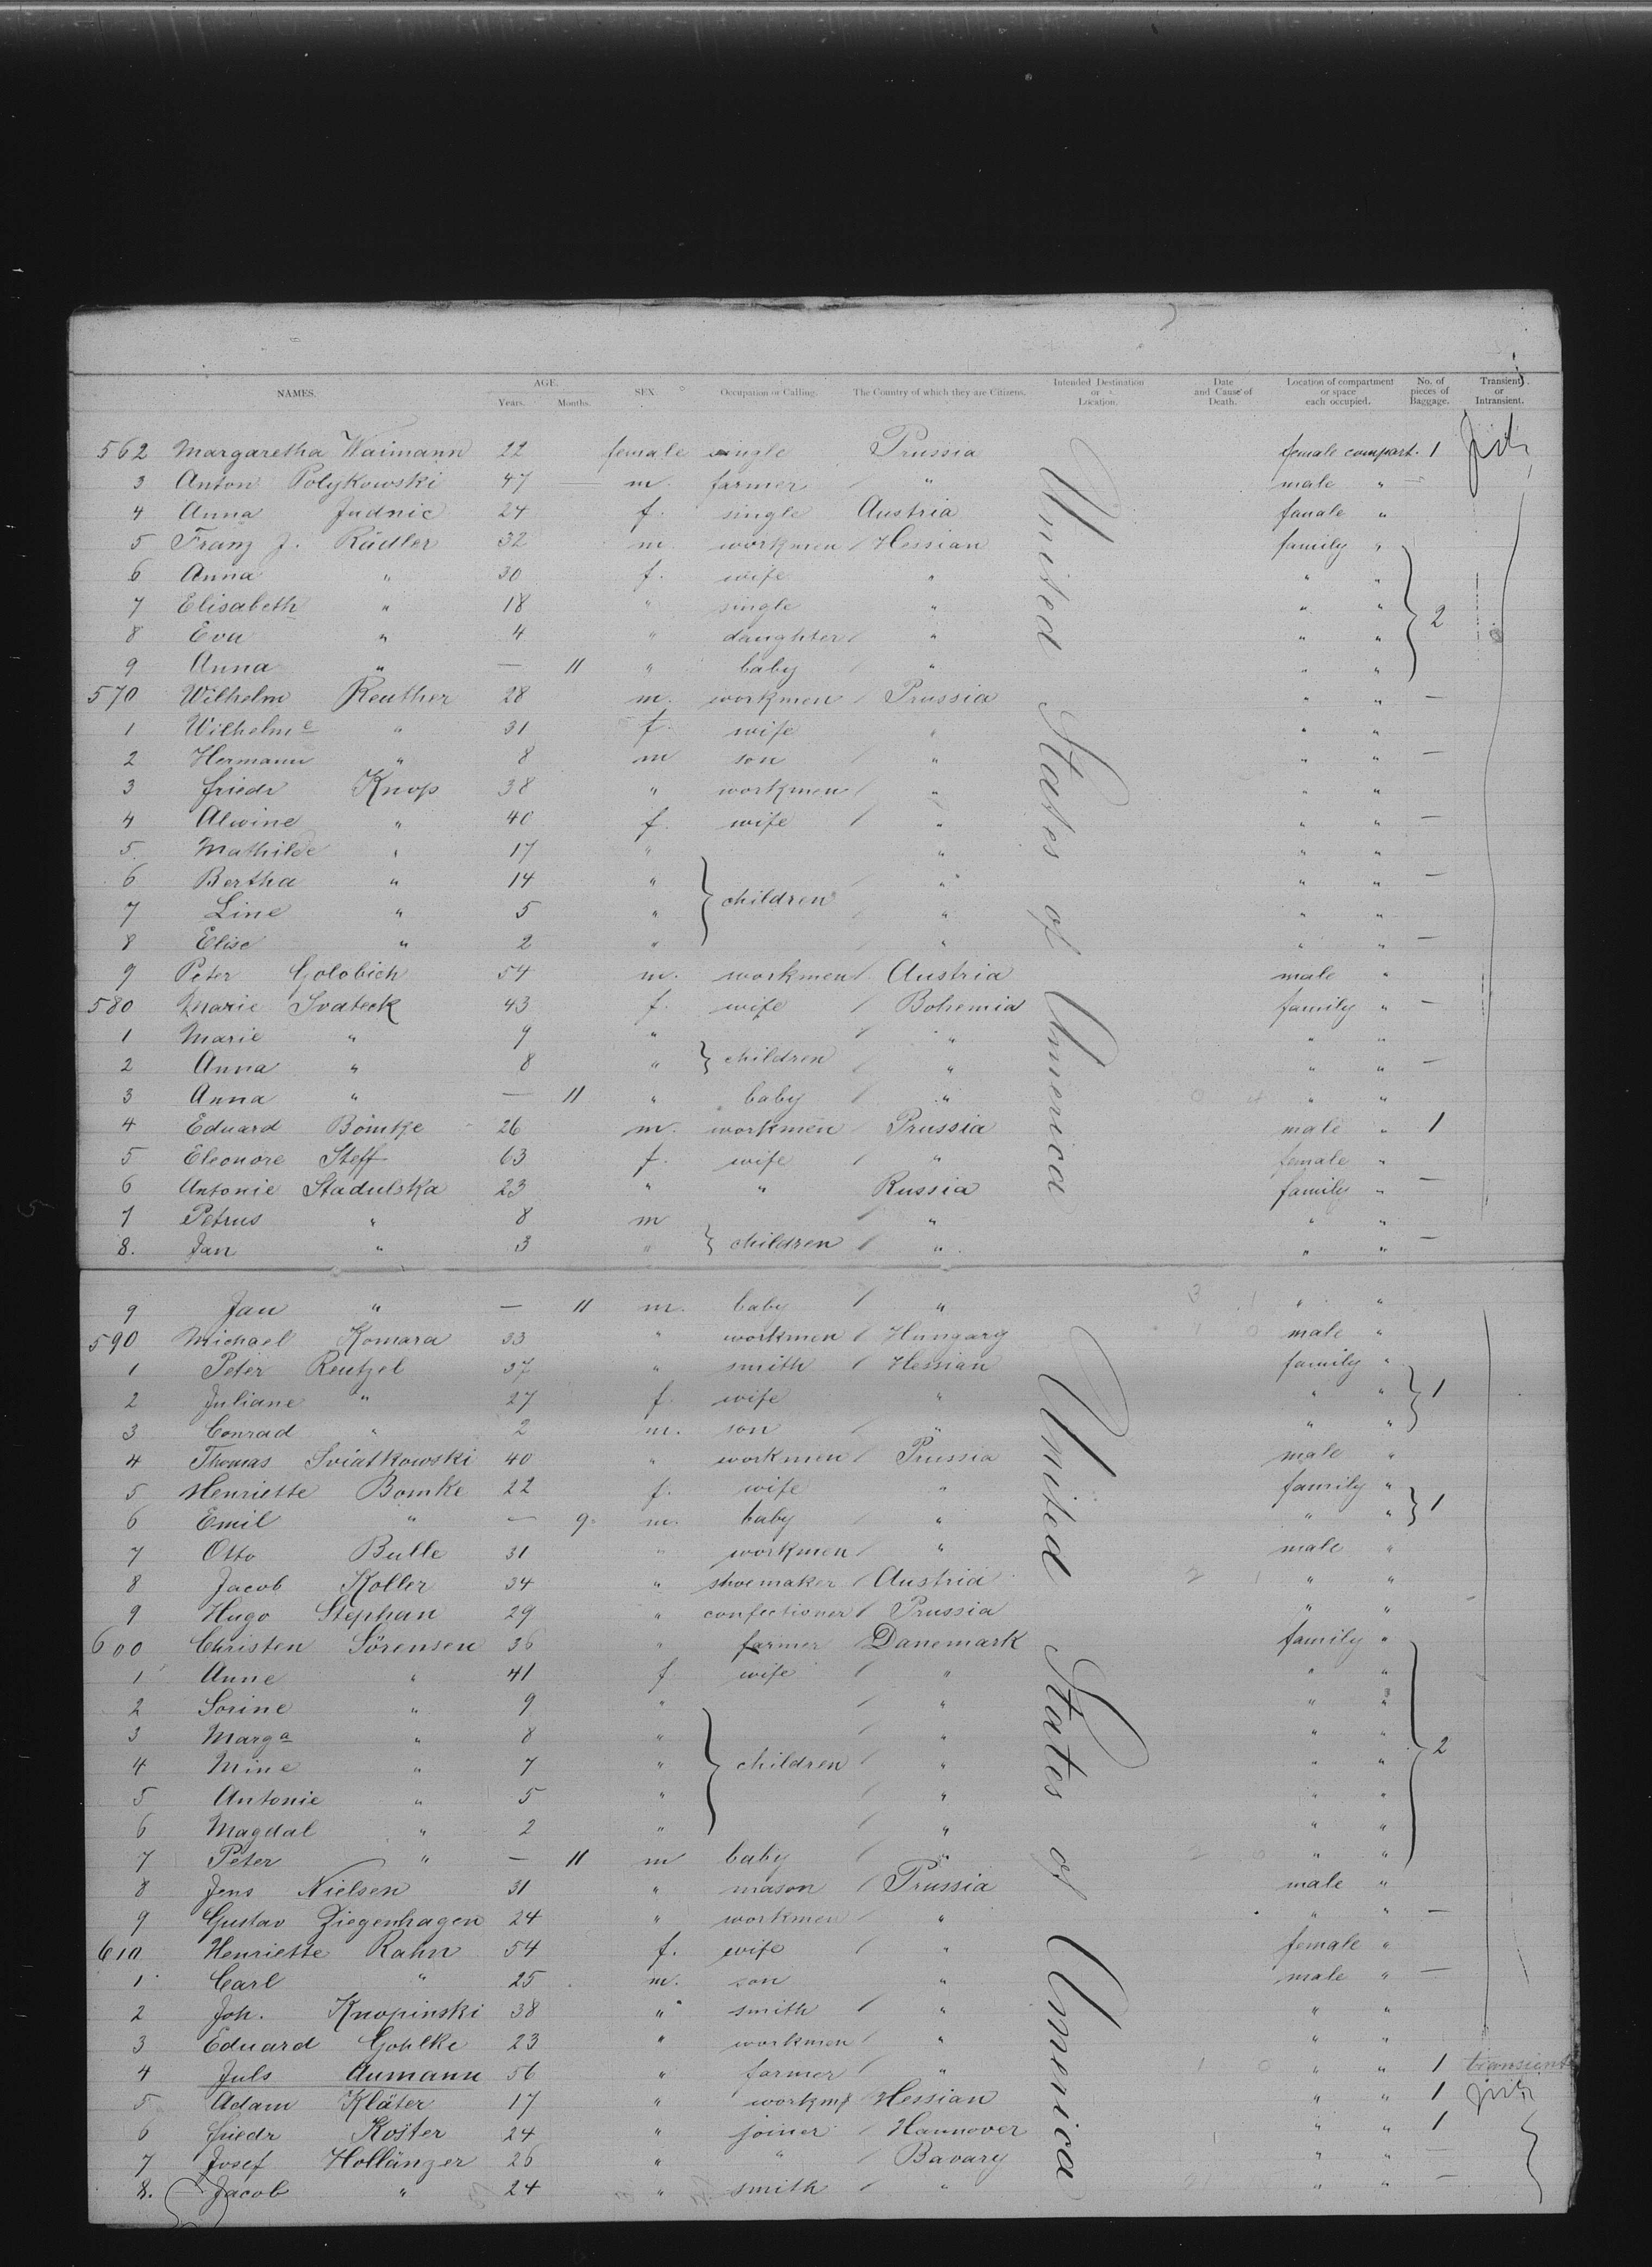 NAMES. AGE. Years. Months. SEX. Occupation or Calling. The Country of which they are Citizens. Intended Destination or Location. Date and Cause of Death. Location of compartment or space each occupied. No. of pieces of Baggage. Transient or Intransient.
562 Margaretha Waimann 22 female single Prussia female compart. 1
3 Anton Polykowski 47 — m. farmer " male " —
4 Anna Judnic 24 f. single Austria female "
5 Franz J. Rädler 32 m workmen Hessian family "
6 Anna " 30 f. wife " " "
7 Elisabeth " 18 " single " " " 2
8 Eva " 4 " daughter " " "
9 Anna " — 11 " baby " " "
570 Wilhelm Reuther 28 m. workmen Prussia " " —
1 Wilhelme " 31 f. wife " " "
2 Hermann " 8 m son " " " —
3 Friedr Knop 38 " workmen " " "
4 Alwine " 40 f. wife " " " —
5. Mathilde " 17 " " " "
6 Bertha " 14 " children " " " —
7 Line " 5 " " " "
8 Elise " 2 " " " " —
9 Peter Golobich 54 m. workmen Austria male "
580 Marie Svateck 43 f. wife Bohemia family " —
1 Marie " 9 " " " "
2 Anna " 8 " children " " " —
3 Anna " — 11 " baby " " "
4 Eduard Bömke 26 m. workmen Prussia male " 1
5 Eleonore Steff 63 f. wife " female "
6 Antonie Stadulska 23 " " Russia family " —
7 Petrus " 8 m " " "
8. Jan " 3 " children " " " —
9 Jan " — 11 m. baby " " "
590 Michael Komara 33 " workmen Hungary male "
1 Peter Reutzel 37 " smith Hessian family "
2 Juliane " 27 f. wife " " " 1
3 Conrad " 2 m. son " " "
4 Thomas Sviatkowski 40 " workmen Prussia male "
5 Henriette Bomke 22 f. wife " family "
6 Emil " — 9. m. baby " " " 1
7 Otto Bulle 31 " workmen " male "
8 Jacob Koller 34 " shoemaker Austria " "
9 Hugo Stephan 29 " confectioner Prussia " "
600 Christen Sörensen 36 " farmer Danemark family "
1 Anne " 41 f wife " " "
2 Sorine " 9 " " " "
3 Marga " 8 " " " " 2
4 Mine " 7 " children " " "
5 Antonie " 5 " " " "
6 Magdal " 2 " " " "
7 Peter " — 11 m baby " " "
8 Jens Nielsen 31 " mason Prussia male "
9 Gustav Ziegenhagen 24 " workmen " " " —
610 Henriette Rahn 54 f. wife " female "
1 Carl " 25 m. son " male " —
2 Joh. Knopinski 38 " smith " " "
3 Eduard Gohlke 23 " workmen " " "
4 Juls Aumann 56 " farmer " " " 1 transient
5 Adam Kläter 17 " Hessian " " 1
6 Friedr Köster 24 " joiner Hannover " " 1
7 Josef Hollänzer 26 " " Bavary " " —
8. Jacob " 24 " smith " " " —
United States of America
United States of America